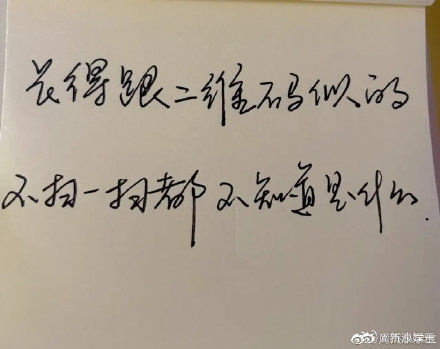 长得跟二维码似的
不扫一扫都不知道是什么.
@新浪娱乐